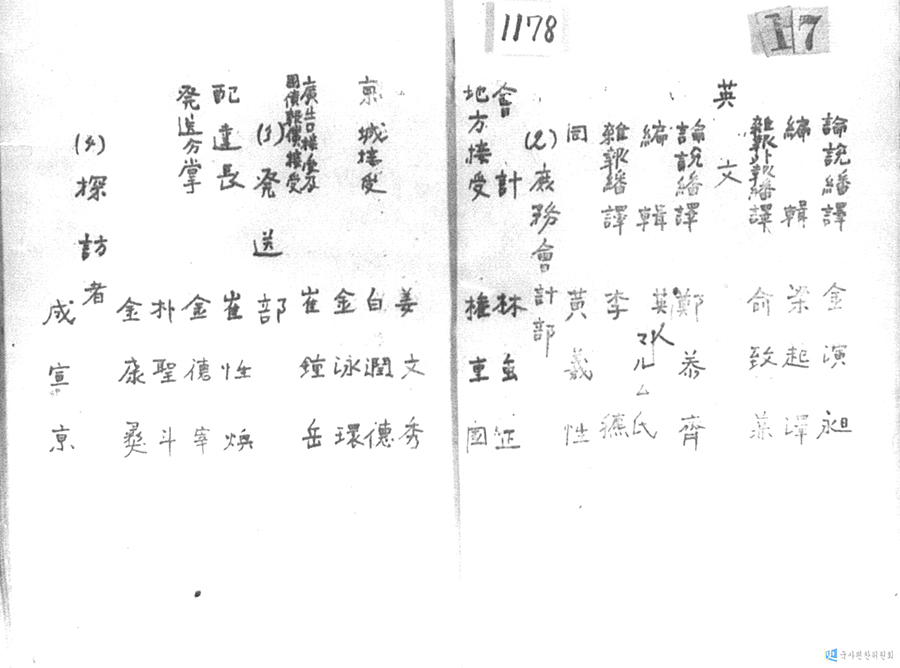 1178
17
論説繙譯 金演昶
編輯 梁起澤
雑報外報繙譯 俞致兼
英文
論説繙譯 鄭泰齊
編輯 英人マルム氏
雑報繙譯 李德
同 黃義性
(2)庶務會計部
會計 林𡈽
地方接受 權重國
姜文秀
京城接受 白潤德
金泳環
廣告接受及國債報償接受 崔鐘岳
(3)発送部
配達長 崔性煥
発送分掌 金德宰
朴聖斗
金康
(4)探訪者
成宣京
국사편찬위원회